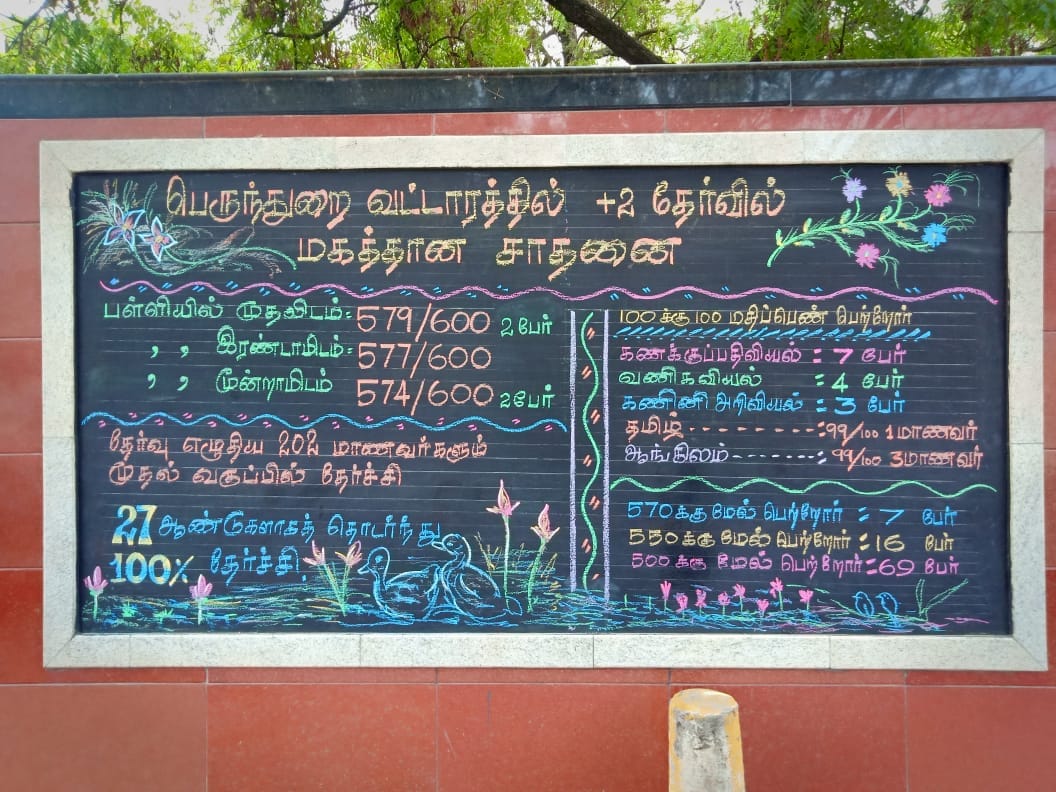 பெருந்துறை வட்டாரத்தில் +2 தேர்வில்
மகத்தான சாதணை
பள்ளியில் முதலிடம்: 579/600 2 பேர்
,, இரண்டாமிடம்: 577/600
,, மூன்றாமிடம் 574/600 2பேர்
தேர்வு எழுதிய 202 மாணவர்களும்
முதல் வகுப்பில் தேர்ச்சி
27 ஆண்டுகளாகத் தொடர்ந்து
100% தேர்ச்சி.
100க்கு 100 மதிப்பெண் பெற்றோர்
கணக்குப்பதிவியல் : 7 பேர்
வணிகவியல் : 4 பேர்
கணினி அறிவியல் : 3 பேர்
தமிழ் --------:99/100 1 மாணவர்
ஆங்கிலம்-------: 99/100 3மாணவர்
570க்கு மேல் பெற்றோர் : 7 பேர்
550க்கு மேல் பெற்றோர் : 16 பேர்
500 க்கு மேல் பெற்றோர்:69 பேர்